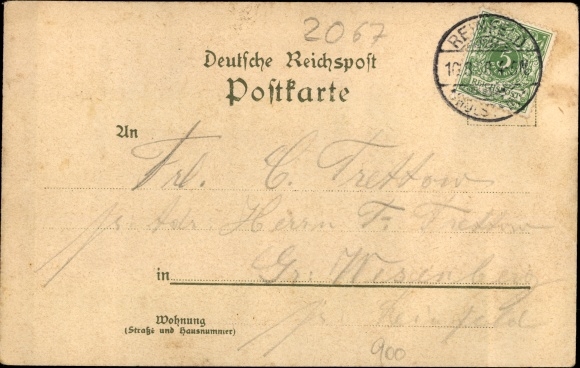 2067
Deutsche Reichspost
Postkarte
An
Frl. C. Trettow
pr. Adr. Herrn F. Trettow
in Gr: Wesenberg
pr. Reinfeld
Wohnung
(Straße und Hausnummer)
900